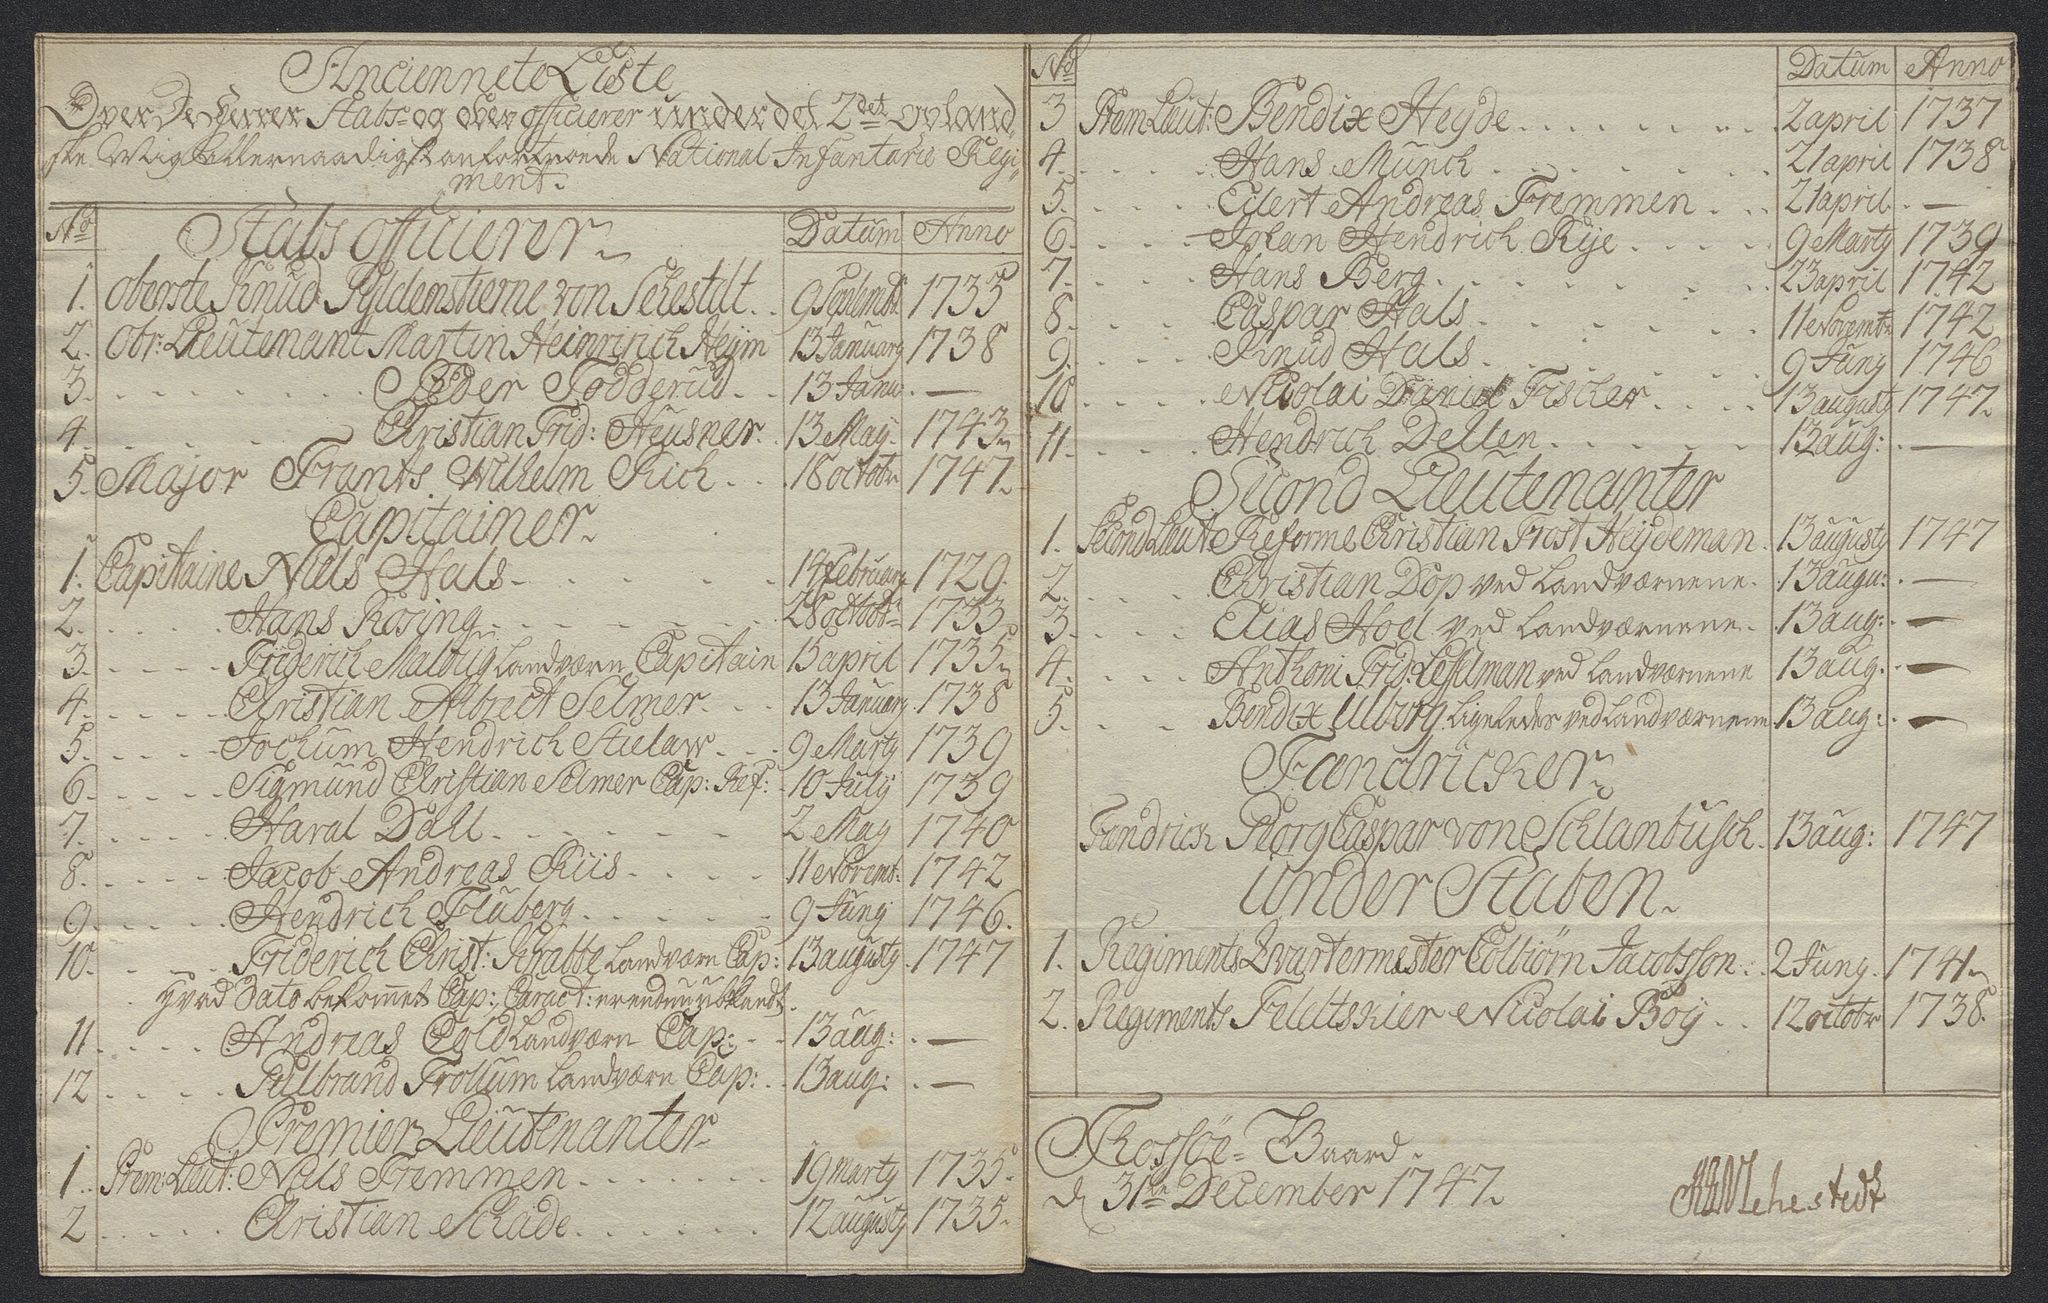 Anciennete Liste
Over De Herrer Stabs og ober officierer under det 2det opland
ske Mig Allernaadigst anfortroede National Infantarie Regi
ment.
No Stabs officierer Datum Anno
1. oberste Knud Gyldenstierne von Sehestedt. 9 Septembr 1733
2. Obr: Lieutenant Martin Heinrich Heÿm 13 January 1738
3. Peder Todderud. 13 Janu. —
4. Christian Frid: Heusner. 13 Maÿ. 1743
5. Major Frants Wilhelm Rich. 18 octobr 1747.
Capitainer.
1. Capitaine Niels Hals. 14 February 1729.
2. Hans Rosing. 28 octob: 1733
3. Friderich Maltzig Landværn Capitain 15 april 1735
4. Christian Albrect Selmer. 13 January 1738
5. Jochum Hendrich Stielaw. 9 Marty 1739
6. Sigmund Christian Selmer Cap: Ref: 10 July 1739
7. Haral Dall. 2 May 1740
8. Jacob Andreas Riis. 11 Novemb: 1742
9. Hendrich Fluberg. 9 Juny 1746.
10. Friderich Christ: Krabbe Landværn Cap: 13 augusty 1747
hvad Dato bekommet Cap: Caract: er endnu
11. Andreas Cold Landværn Cap: 13 aug: —
12 Gulbrand Trollum Landværn Cap: 13 aug: —
Premier Lieutenanter
1. Prem: Lieut: Niels Fremmen. 19 marty 1735.
2 Christian Schade. 12 augusty 1735.
No Datum Anno
3 Prem Lieut: Bendix Heyde. 2 april 1737
4. Hans Munch. 21 april 1738
5. Eilert Andreas Fremmen. 21 april. —
6. Johan Hendrich Rije. 9 Marty 1739
7. Hans Berg. 23 april 1742
8. Caspar Hals. 11 Novembr 1742
9. Knud Hals. 9 Juny 1746
10 Nicolai Daniel Fischer. 13 augusty 1747.
11. Hendrich Dellen. 13 aug: —
Second Lieutenanter
1. Second Lieut Reforme Christian Frost Heÿdeman. 13 augusty 1747
2. Christian Dop ved Landværnene. 13 augu: —
3. Elias Hoel ved Landværnene. 13 aug: —
4. Anthoni Frid: Leffelman ved Landværnene 13 aug. —
5. Bendix Ulborg Ligeledes ved Landværnene 13 aug: —
Fændricker
Fændrich Georg Caspar von Schlanbusch. 13 aug: 1747
Under Staben.
1. Regiments Qvartermester Colbiørn Jacobsson. 2 Juny. 1741
2. Regiments Feldtskier Nicolai Boÿ. 12 octobr 1738.
Thossøe Gaard.
d 31te December 1747.
Sehestedt